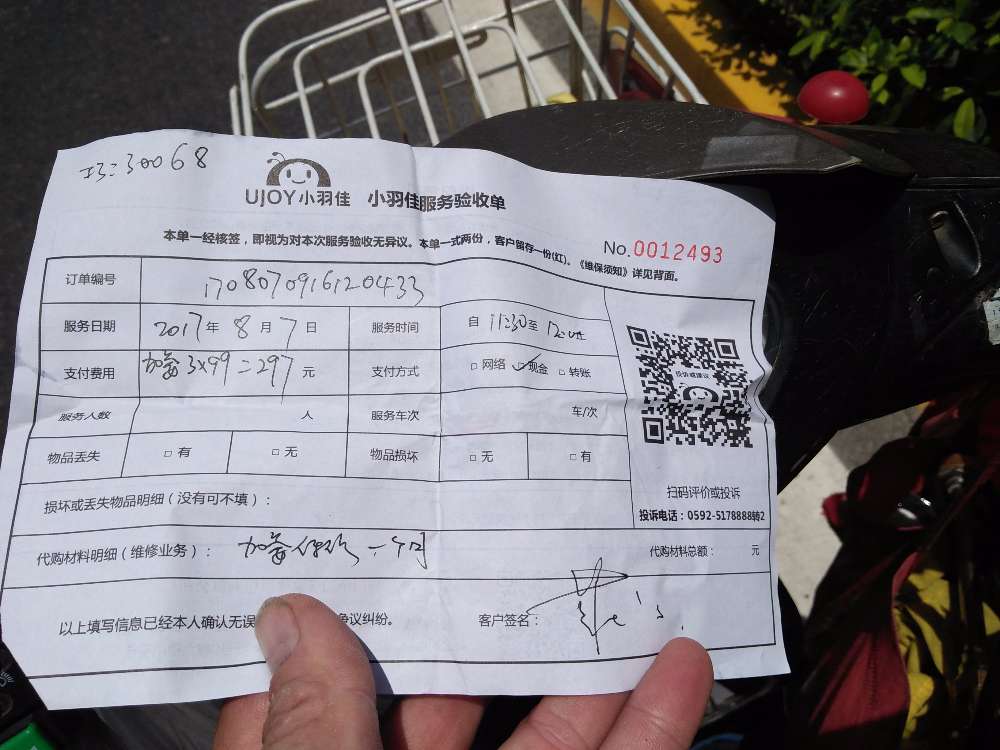 工号:30068
UJOY小羽佳 小羽佳服务验收单
本单一经核签，即视为对本次服务验收无异议。本单一式两份，客户留存一份(红)。《维保须知》详见背面。
No.0012493
订单编号 1708070916120433
服务日期 2017年 8月 7日 服务时间 自 11:30至
支付费用 3×99=297 元 支付方式 □ 网络 □现金 □ 转账
服务人数 人 服务车次 车/次
物品丢失 □ 有 □ 无 物品损坏 □ 无 □ 有
投诉或建议
扫码评价或投诉
投诉电话：0592-5178888转2
损坏或丢失物品明细（没有可不填）：
代购材料明细（维修业务）： 一个月 代购材料总额： 元
以上填写信息已经本人确认无误 争议纠纷。 客户签名：